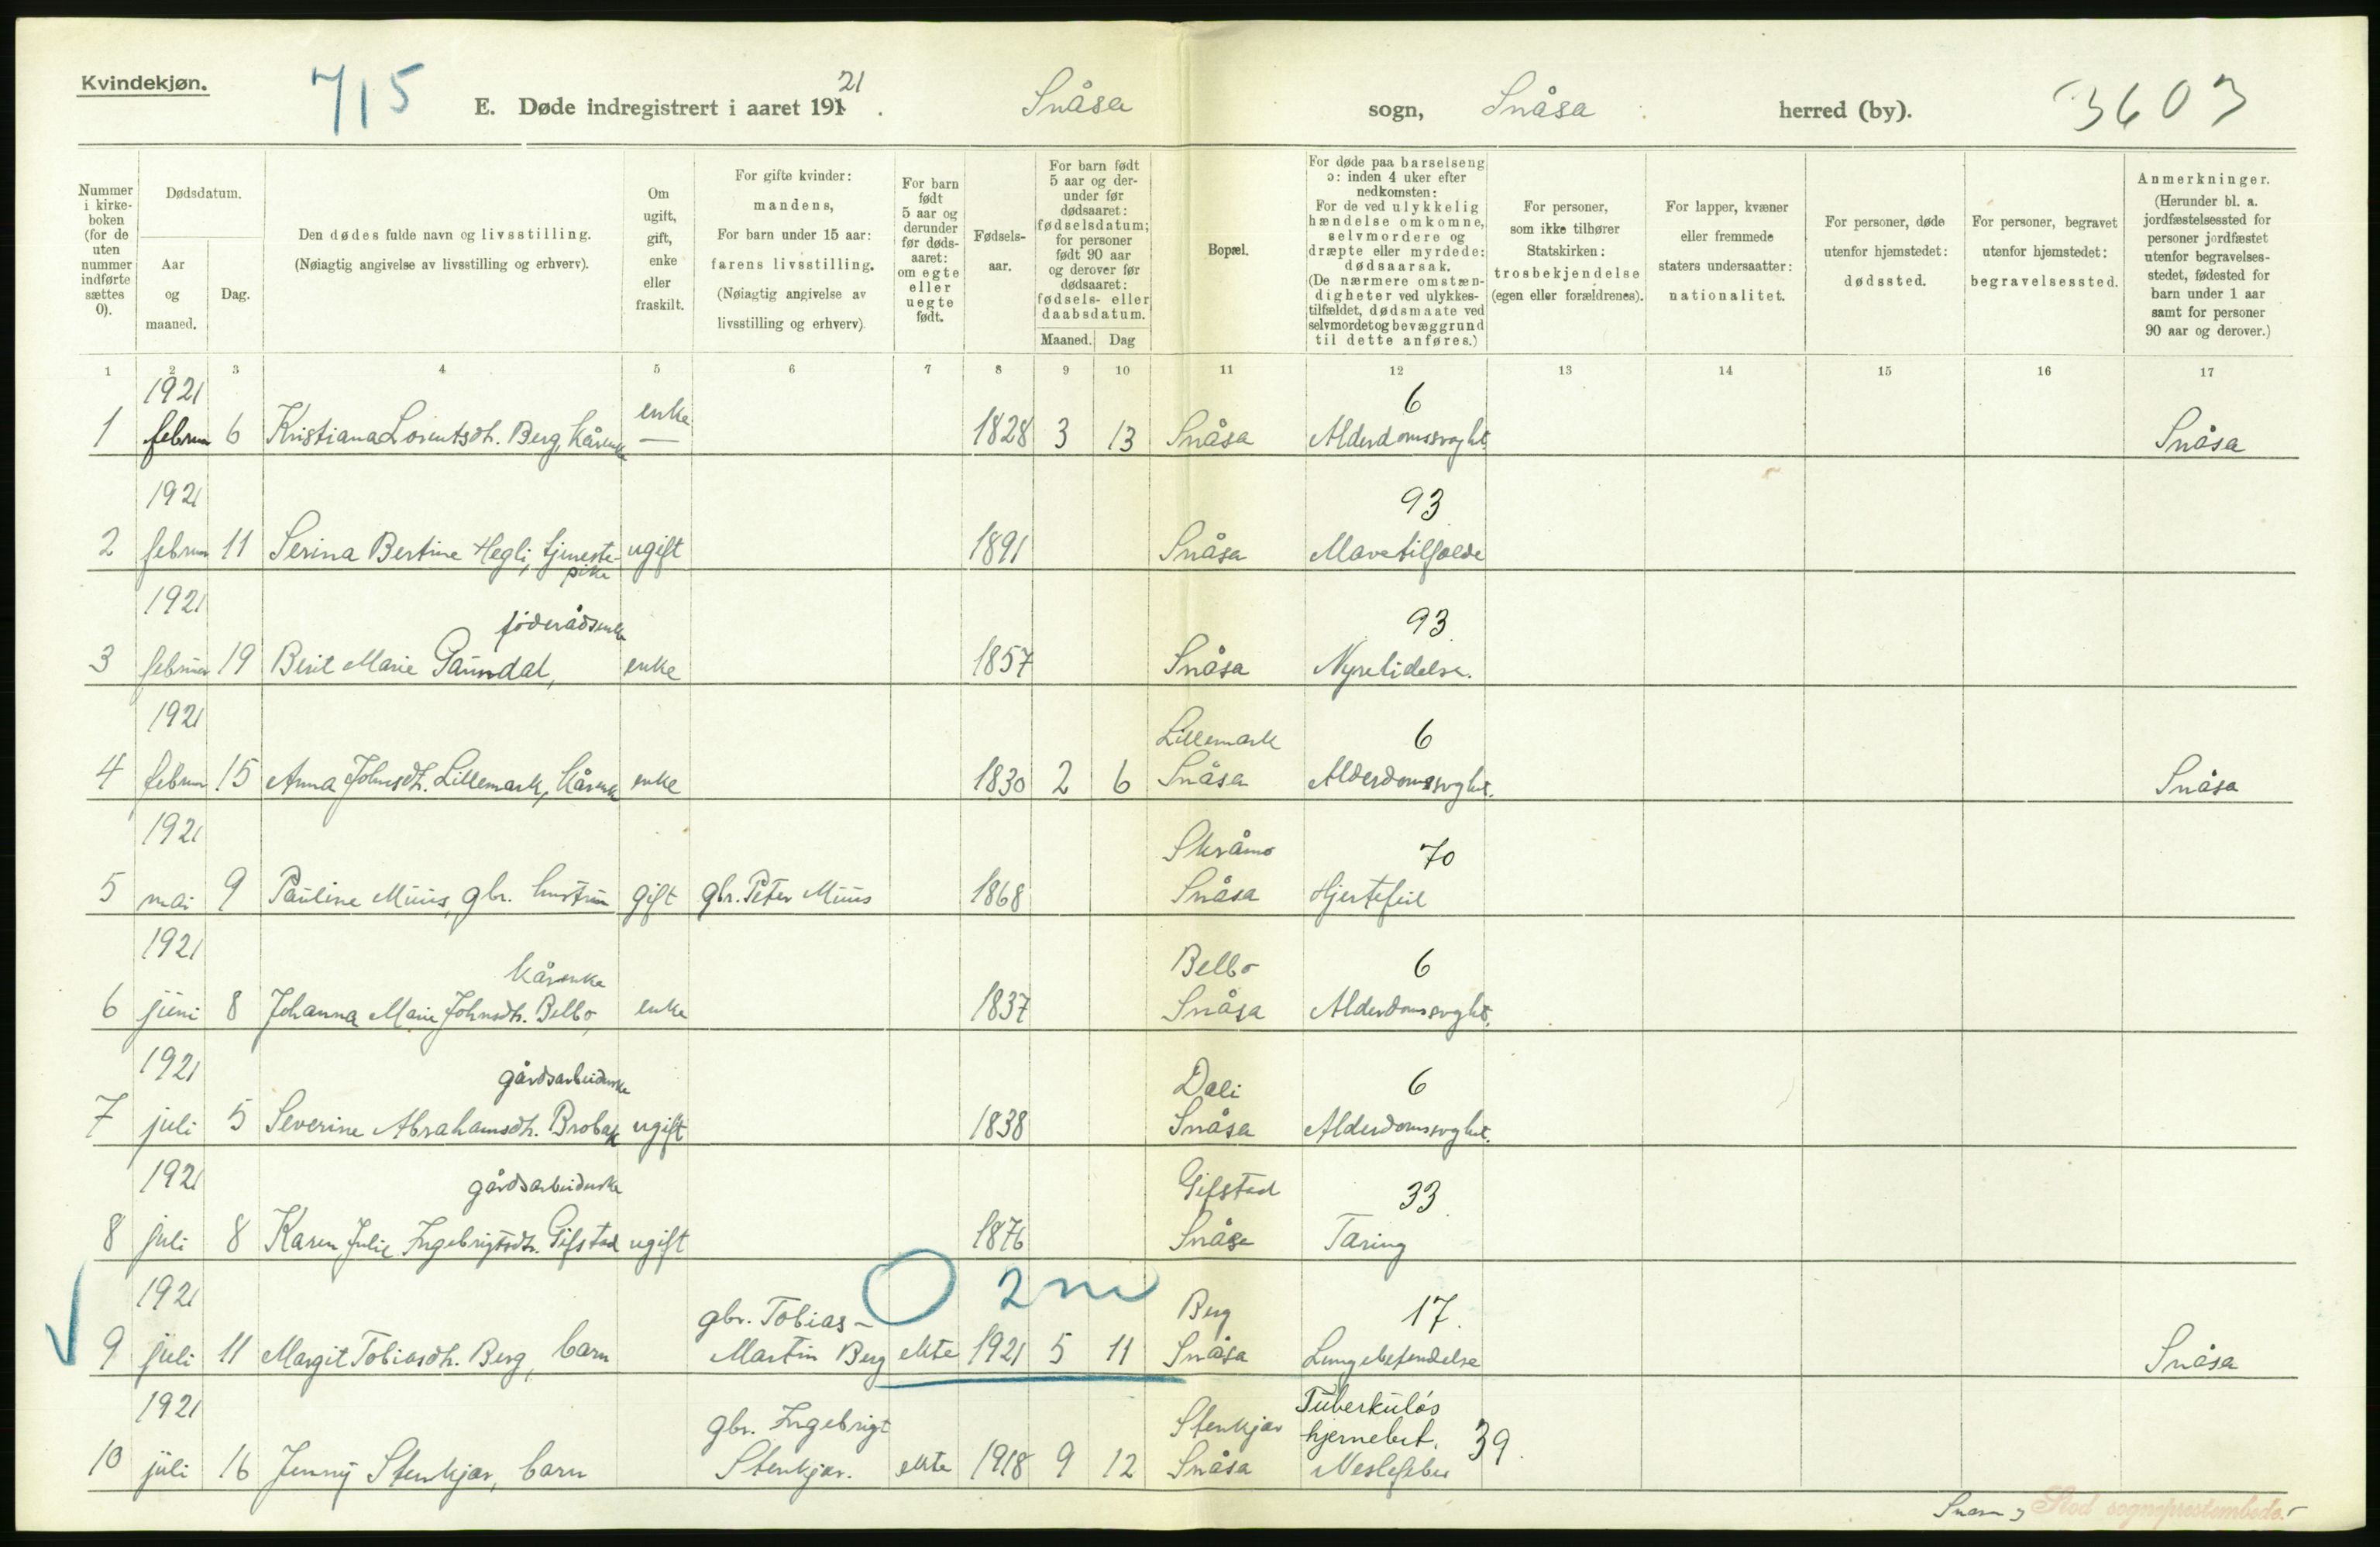 Kvindekjøn.
715
E. Døde indregistrert i aaret 191 21.
Snåsa sogn, Snåsa herred (by).
3603
Nummer i kirke-boken (for de uten nummer indførte sættes 0).
Dødsdatum.
Aar og maaned.
Dag.
Den dødes fulde navn og livsstilling.
(Nøiagtig angivelse av livsstilling og erhverv).
Om ugift, gift, enke eller fraskilt.
For gifte kvinder: mandens,
For barn under 15 aar: farens livsstilling.
(Nøiagtig angivelse av livsstilling og erhverv).
For barn født 5 aar og derunder før døds-aaret: om egte eller uegte født.
Fødsels-aar.
For barn født 5 aar og der-under før dødsaaret: fødselsdatum; for personer født 90 aar og derover før dødsaaret: fødsels- eller daabsdatum.
Maaned. Dag
Bopæl.
For døde paa barselseng ɔ: inden 4 uker efter nedkomsten:
For de ved ulykkelig hændelse omkomne, selvmordere og dræpte eller myrdede: dødsaarsak.
(De nærmere omstæn-digheter ved ulykkes-tilfældet, dødsmaate ved selvmord et og bevæggrund til dette anføres.)
For personer, som ikke tilhører Statskirken: trosbekjendelse (egen eller forældrenes).
For lapper, kvæner eller fremmede staters undersaatter: nationalitet.
For personer, døde utenfor hjemstedet: dødssted.
For personer, begravet utenfor hjemstedet: begravelsessted.
Anmerkninger.
(Herunder bl. a. jordfæstelsessted for personer jordfæstet utenfor begravelses-stedet, fødested for barn under 1 aar samt for personer 90 aar og derover.)
1 2 3 4 5 6 7 8 9 10 11 12 13 14 15 16 17
1921 enke 6
1 februar 6 Kristiana Lorentsdt. Berg, kårenke — 1828 3 13 Snåsa Alderdomssvaght. Snåsa
1921 93
2 februar 11 Serina Bertine Hegli, tjeneste- ugift 1891 Snåsa Mavetilfælde
pike
1921 føderådsenke 93
3 februar 19 Berit Marie Gaundal, enke 1857 Snåsa Nyrelidelse.
1921 Lillemark 6
4 februar 15 Anna Johnsdt. Lillemark, kårenke enke 1830 2 6 Snåsa Alderdomssvght. Snåsa
1921 Skråmo 70
5 mai 9 Pauline Muus, gbr. hustru gift gbr. Peter Muus 1868 Snåsa Hjertefeil
1921 kårenke Belbo 6
6 juni 8 Johanna Marie Johnsdt. Belbo, enke 1837 Snåsa Alderdomssvght.
1921 gårdsarbeiderske Dali 6
7 juli 5 Severine Abrahamsdt. Brobak ugift 1838 Snåsa Alderdomssvght.
1921 gårdsarbeiderske Gifstad 33
8 juli 8 Karen Julie Ingebrigtsdt. Gifstad ugift 1876 Snåsa Tæring
1921 gbr. Tobias- 2 m Berg 17.
9 juli 11 Margit Tobiasdt. Berg, barn Martin Berg ekte 1921 5 11 Snåsa Lungebetendelse Snåsa
1921 gbr. Ingebrigt Stenkjær Tuberkuløs
hjernebet. 39.
10 juli 16 Jenny Stenkjær, barn Stenkjær. ekte 1918 9 12 Snåsa Meslefeber
Stod sogneprestembede.